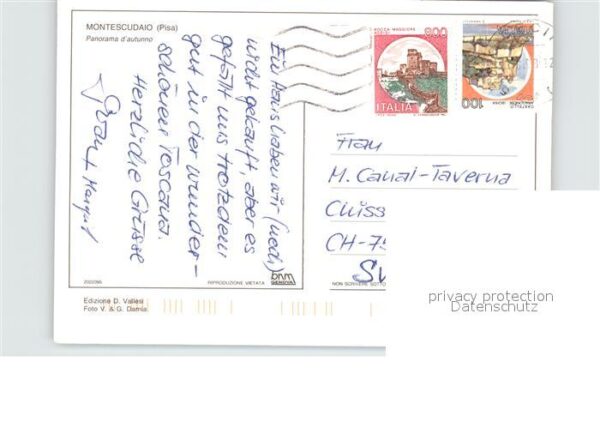 MONTESCUDAIO (Pisa)
Panorama d'autunno
Ein Haus haben wir (noch)
nicht gekauft, aber es
gefällt uns trotzdem
gut in der wunder-
schönen Toscana.
Herzliche Grüsse
Margrit
ROCCA MAGGIORE
800
ITALIA
100
Frau
M. Canai-Taverna
CH-75
2502/095
RIPRODUZIONE VIETATA
NON SCRIVERE SOTTO
Edizione D. Vallesi
Foto V. & G. Damia
privacy protection
Datenschutz